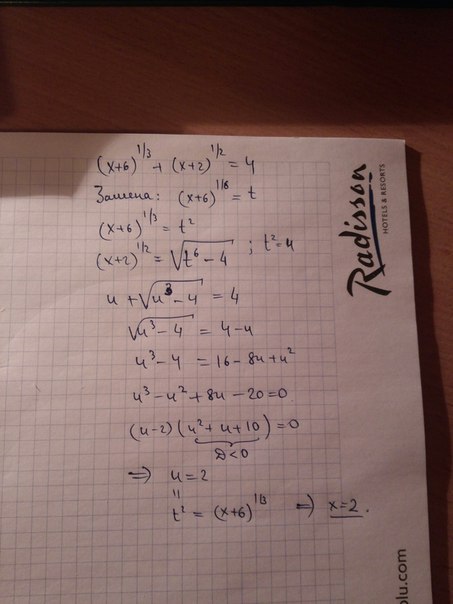 (x+6)^{1/3} + (x+2)^{1/2} = 4
Замена: (x+6)^{1/6} = t
(x+6)^{1/3} = t²
(x+2)^{1/2} = √(t⁶ - 4) ; t² = u
u + √(u³ - 4) = 4
√(u³ - 4) = 4 - u
u³ - 4 = 16 - 8u + u²
u³ - u² + 8u - 20 = 0
(u-2)(u² + u + 10) = 0
D < 0
⇒ u = 2
=
t² = (x+6)^{1/3} ⇒ x = 2.
Radisson
HOTELS & RESORTS
olu.com